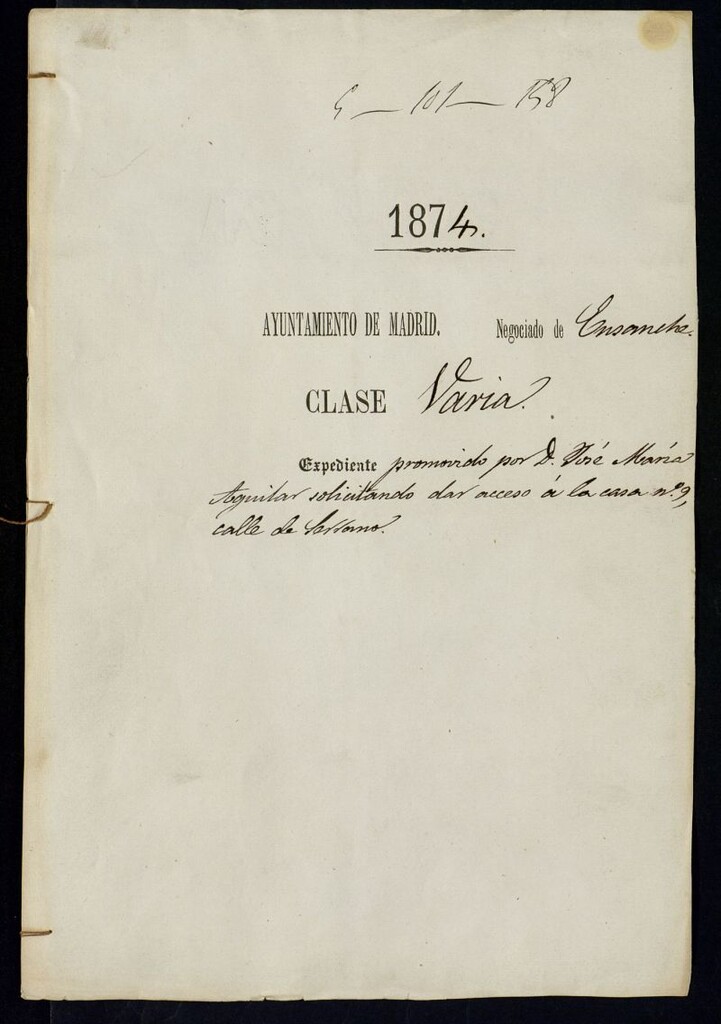 5 — 101 — 158
1874.
AYUNTAMIENTO DE MADRID. Negociado de Ensanche.
CLASE Varia.
Expediente promovido por D. José María
Aguilar solicitando dar acceso á la casa nº 9,
calle de Serrano.